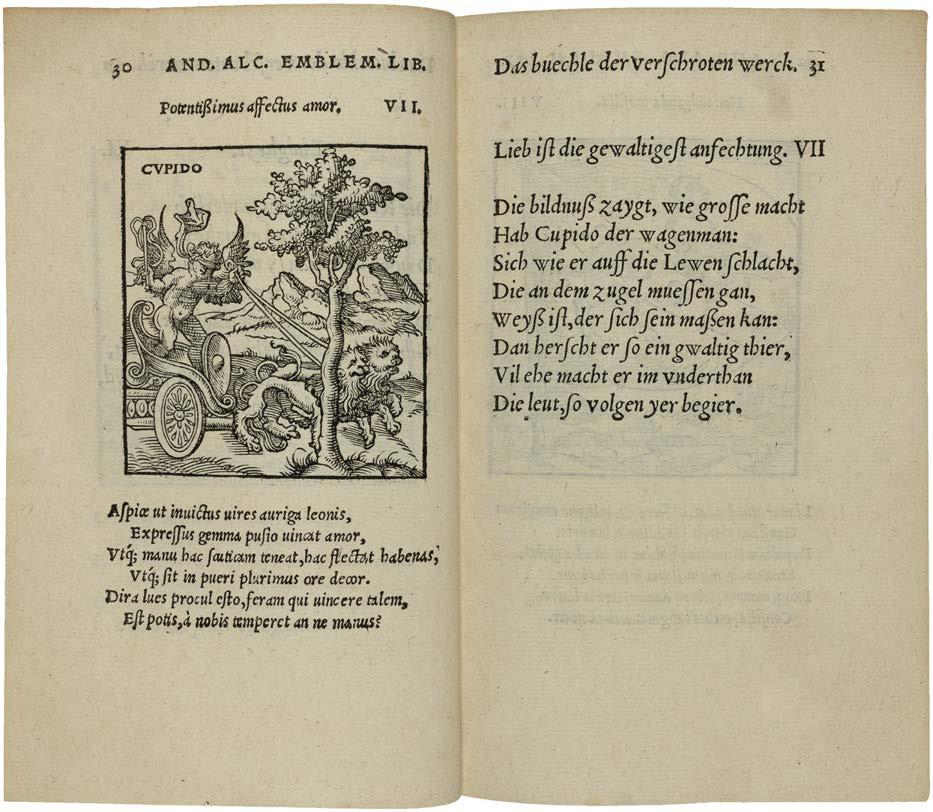 30 AND. ALC. EMBLEM. LIB.
Potentißimus affectus amor. VII.
CVPIDO
Aſpice ut inuictus uires auriga leonis,
Expreſſus gemma puſio uincat amor,
Vtq́; manu hac ſcuticam teneat, hac flectat habenas,
Vtq́; ſit in pueri plurimus ore decor.
Dira lues procul eſto, feram qui uincere talem,
Eſt potis, à nobis temperet an ne manus?
Das buechle der verſchroten werck. 31
Lieb iſt die gewaltigeſt anfechtung. VII
Die bildnuß zaygt, wie groſſe macht
Hab Cupido der wagenman:
Sich wie er auff die Lewen ſchlacht,
Die an dem zugel mueſſen gan,
Weyß iſt, der ſich ſein maßen kan:
Dan herſcht er ſo ein gwaltig thier,
Vil ehe macht er im vnderthan
Die leut, ſo volgen yer begier.